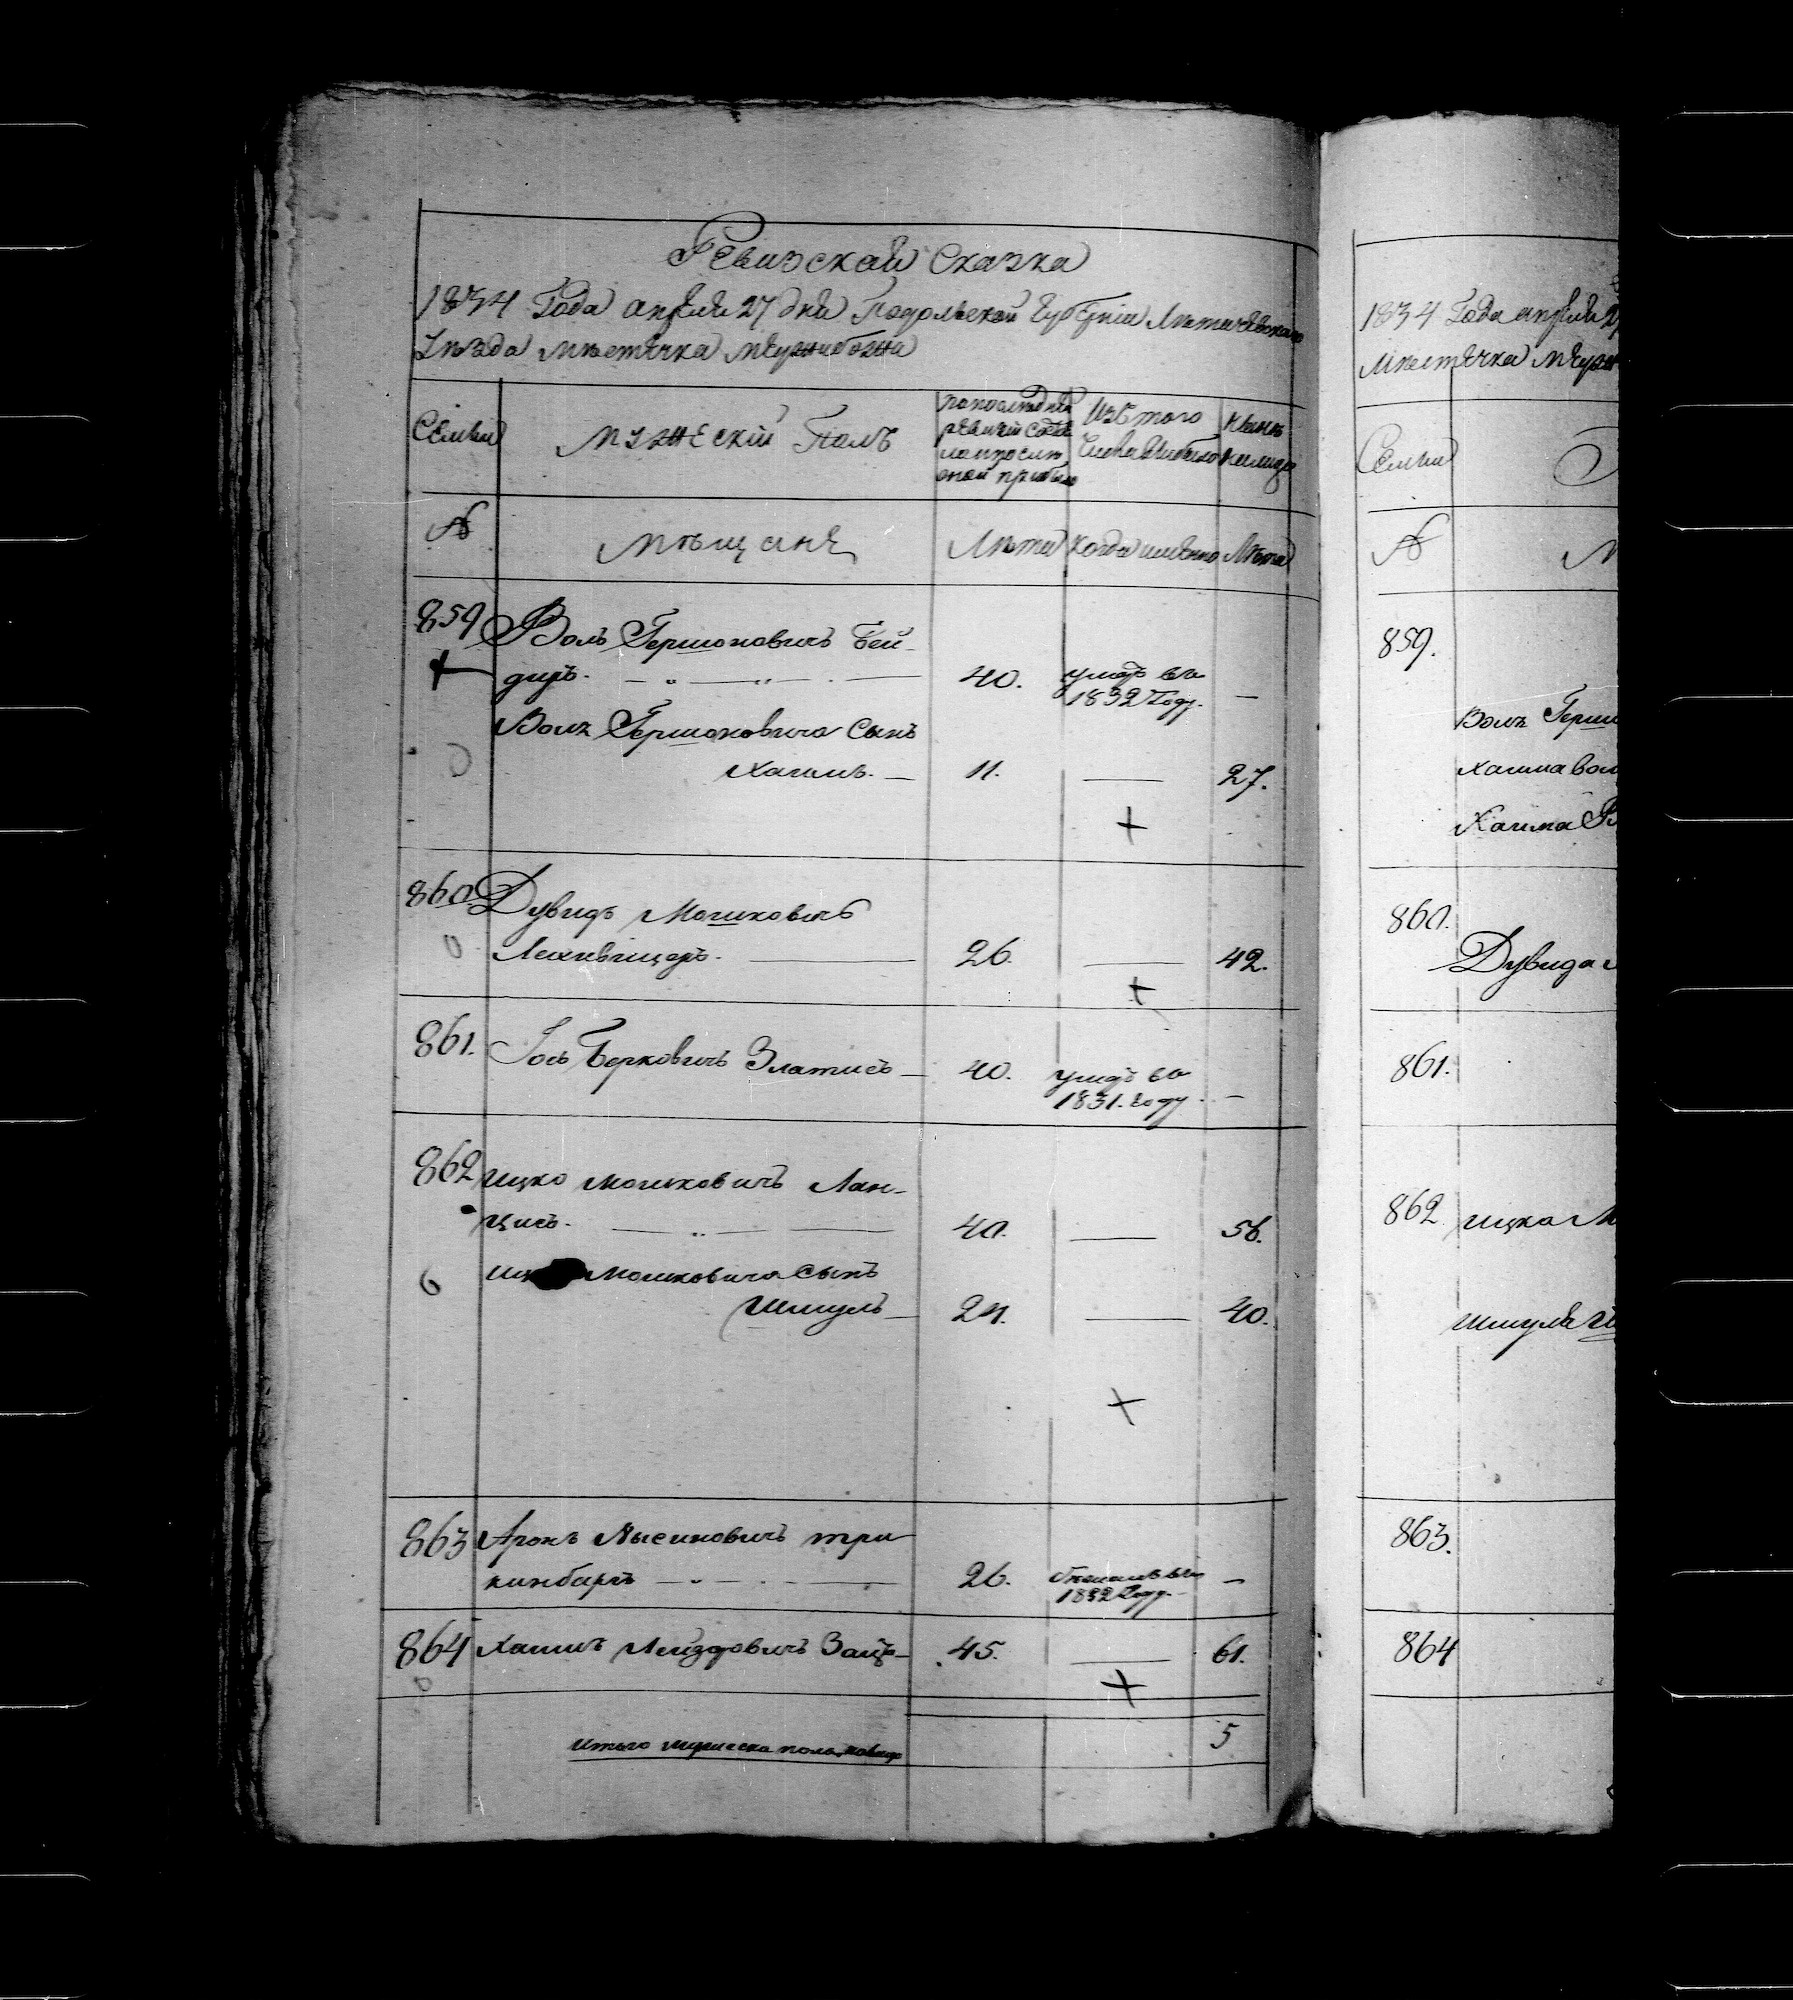 Ревизской Сказка
1834 Года апреля 27 дня Подольской Губерніи Летичевскаго
Уезда местечка межибожа
Семьи
Мужескій Полъ
по последней
ревизіи состо
яло и после
оной прибыло
Изъ того
числа выбыло
Ныне
на лицо
№
Мещане
Лета
Когда именно
Лета
859
Воль Гершоновичъ Бей
деръ.
40.
умеръ въ
1832 Году.
—
Волъ Гершоновича Сынъ
Хаимъ.
11.
—
27.
860
Дувидъ Мошковичъ
26.
—
42.
861.
Іось Берковичъ Златисъ
40.
умеръ въ
1831. году
—
862
Ицко Мошковичъ Лан-
цисъ.
40.
—
56.
Мошковича Сынъ
Шмуль
24.
—
40.
863
Аронъ
26.
1832 Году.
—
864
Хаимъ Лейзоровичъ
45.
—
61.
Итого мужеска пола налицо
5
1834 Года апреля 27
Местечка меж
Семьи
№
М
859.
Волъ Герш
Хаима Вол
Хаима
860.
Дувида
861.
862
Ицка М
Шмуля
863.
864